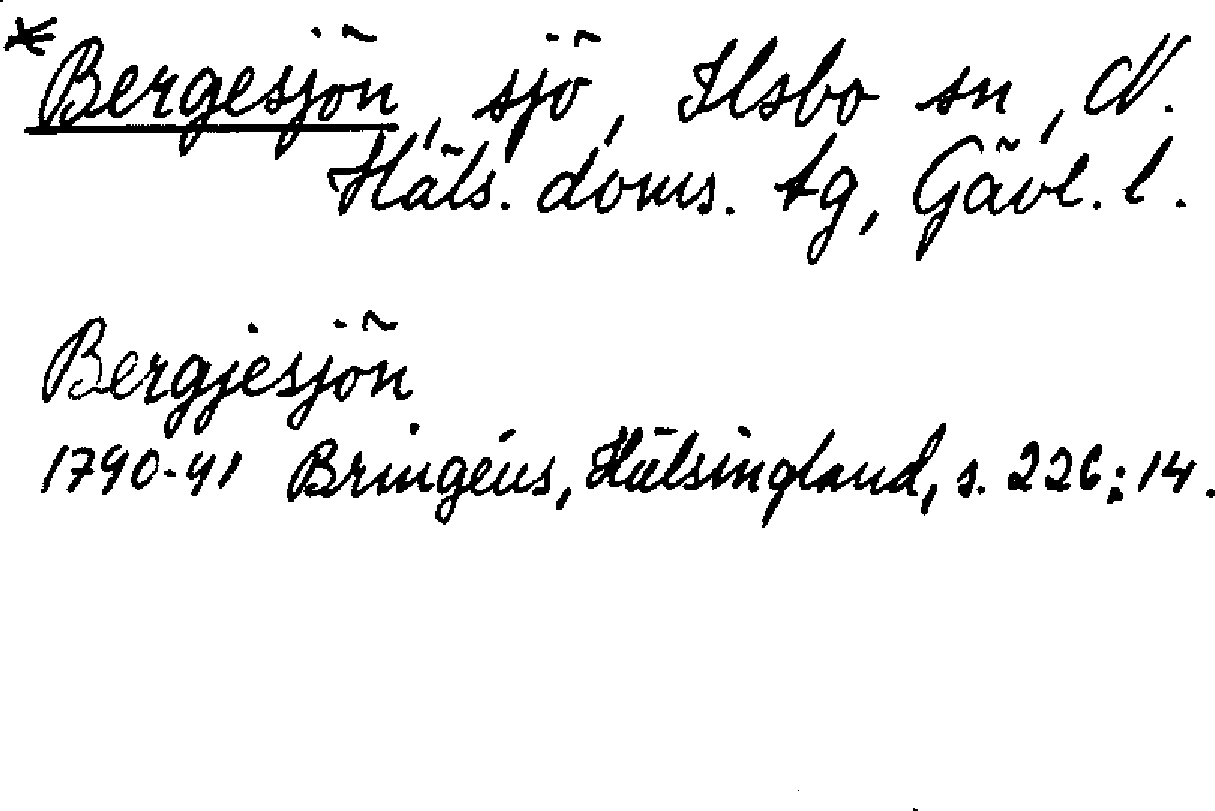 *Bergesjön, sjö, Ilsbo sn, N.
Häls. doms. tg, Gävl. l.
Bergjesjön
1790-91 Bringéus, Hälsingland, s. 226:14.